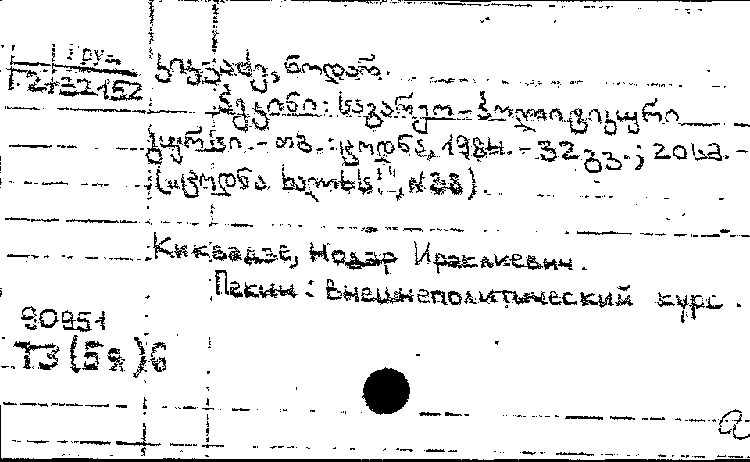 Груз
2132152
კიკვაძე, ნოდარ.
პეკინი: საგარეო-პოლიტიკური
კურსი. - თბ.: ცოდნა, 1984. - 32 გვ.; 20 სმ. -
("ცოდნა ხალხს!", №33).
Киквадзе, Нодар Ираклиевич.
Пекин: внешнеполитический курс.
90951
Т3(5Я)6